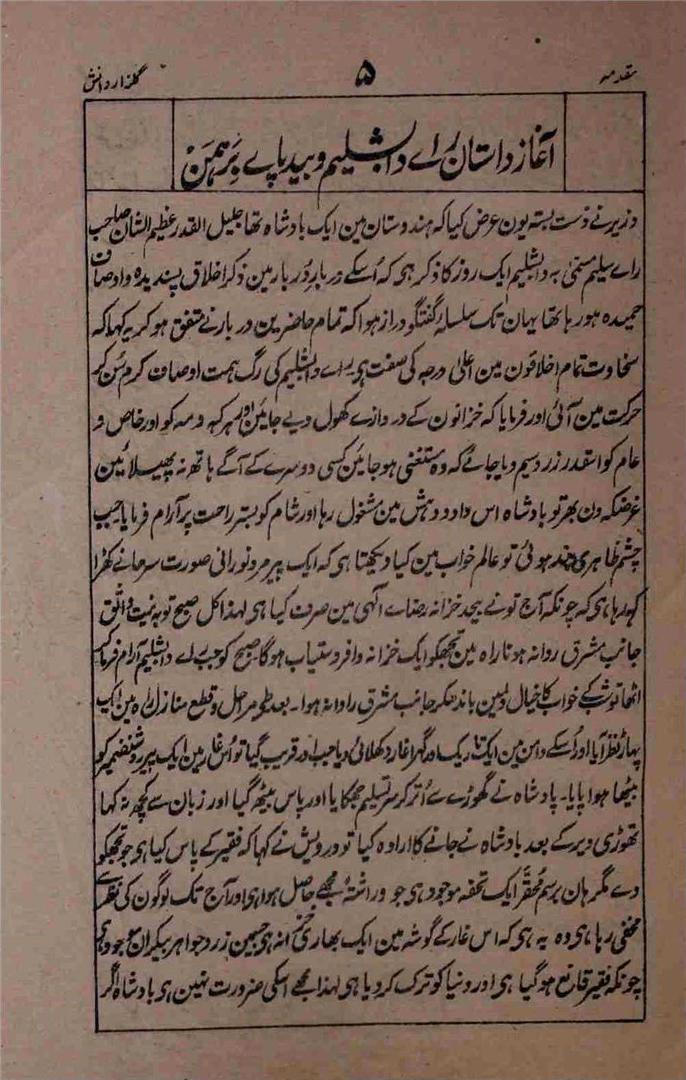 مقدمہ
۵
گلزار دانش
آغاز داستان راے دابشلیم و بیدپاے برہمن
وزیر نے دست بستہ یون عرض کیا کہ ہندوستان مین ایک بادشاہ تھا جلیل القدر عظیم الشان صاحب
راے سلیم مسمّیٰ بہ دابشلیم ایک روز کا ذکر ہی کہ اُسکے دربار دُربار مین ذکر اخلاق پسندیدہ و اوصاف
حمیدہ ہو رہا تھا یہان تک سلسلۂ گفتگو دراز ہوا کہ تمام حاضرین دربار نے متفق ہو کر یہ کہا کہ
سخاوت تمام اخلاقون مین اعلیٰ درجہ کی صفت ہی راے دابشلیم کی رگ ہمت اوصاف کرم سُن کر
حرکت مین آئی اور فرمایا کہ خزانون کے دروازے کھول دیے جائین اور ہر کہ و مہ کو اور خاص و
عام کو اسقدر زر و سیم دیا جائے کہ وہ مستغنی ہو جائین کسی دوسرے کے آگے ہاتھ نہ پھیلائین
غرضکہ دن بھر تو بادشاہ اس داد و دہش مین مشغول رہا اور شام کو بستر راحت پر آرام فرمایا جب
چشم ظاہری بند ہوئی تو عالم خواب مین کیا دیکھتا ہی کہ ایک پیر مرد نورانی صورت سرھانے کھڑا
کہہ رہا ہی کہ چونکہ آج تونے بیحد خزانہ رضاے الٰہی مین صرف کیا ہی لہذا کل صبح تو بہ نیت واثق
جانب مشرق روانہ ہونا راہ مین تجھکو ایک خزانہ وافر دستیاب ہوگا صبح کو جب راے دابشلیم آرام فرما کے
اٹھا تو شب کے خواب کا خیال دلمین باندھکر جانب مشرق روانہ ہوا۔ بعد طے مراحل و قطع منازل راہ مین ایک
پہاڑ نظر آیا اور اُسکے دامن مین ایک تاریک اور گہرا غار دکھلائی دیا جب اور قریب گیا تو اُس غار مین ایک پیر روشنضمیر کو
بیٹھا ہوا پایا۔ بادشاہ نے گھوڑے سے اُتر کر سر تسلیم جھکایا اور پاس بیٹھ گیا اور زبان سے کچھ نہ کہا
تھوڑی دیر کے بعد بادشاہ نے جانے کا ارادہ کیا تو درویش نے کہا کہ فقیر کے پاس کیا ہی جو تجھکو
دے مگر ہان برسم محقر ایک تحفہ موجود ہی جو وراثتہً مجھے حاصل ہوا ہی اور آج تک لوگون کی نظر سے
مخفی رہا ہی وہ یہ ہی کہ اس غار کے گوشہ مین ایک بھاری خزانہ ہی جسمین زر و جواہر بیکران موجود ہی
چونکہ فقیر قانع ہو گیا ہی اور دنیا کو ترک کر دیا ہی لہذا مجھے اسکی ضرورت نہین ہی بادشاہ اگر